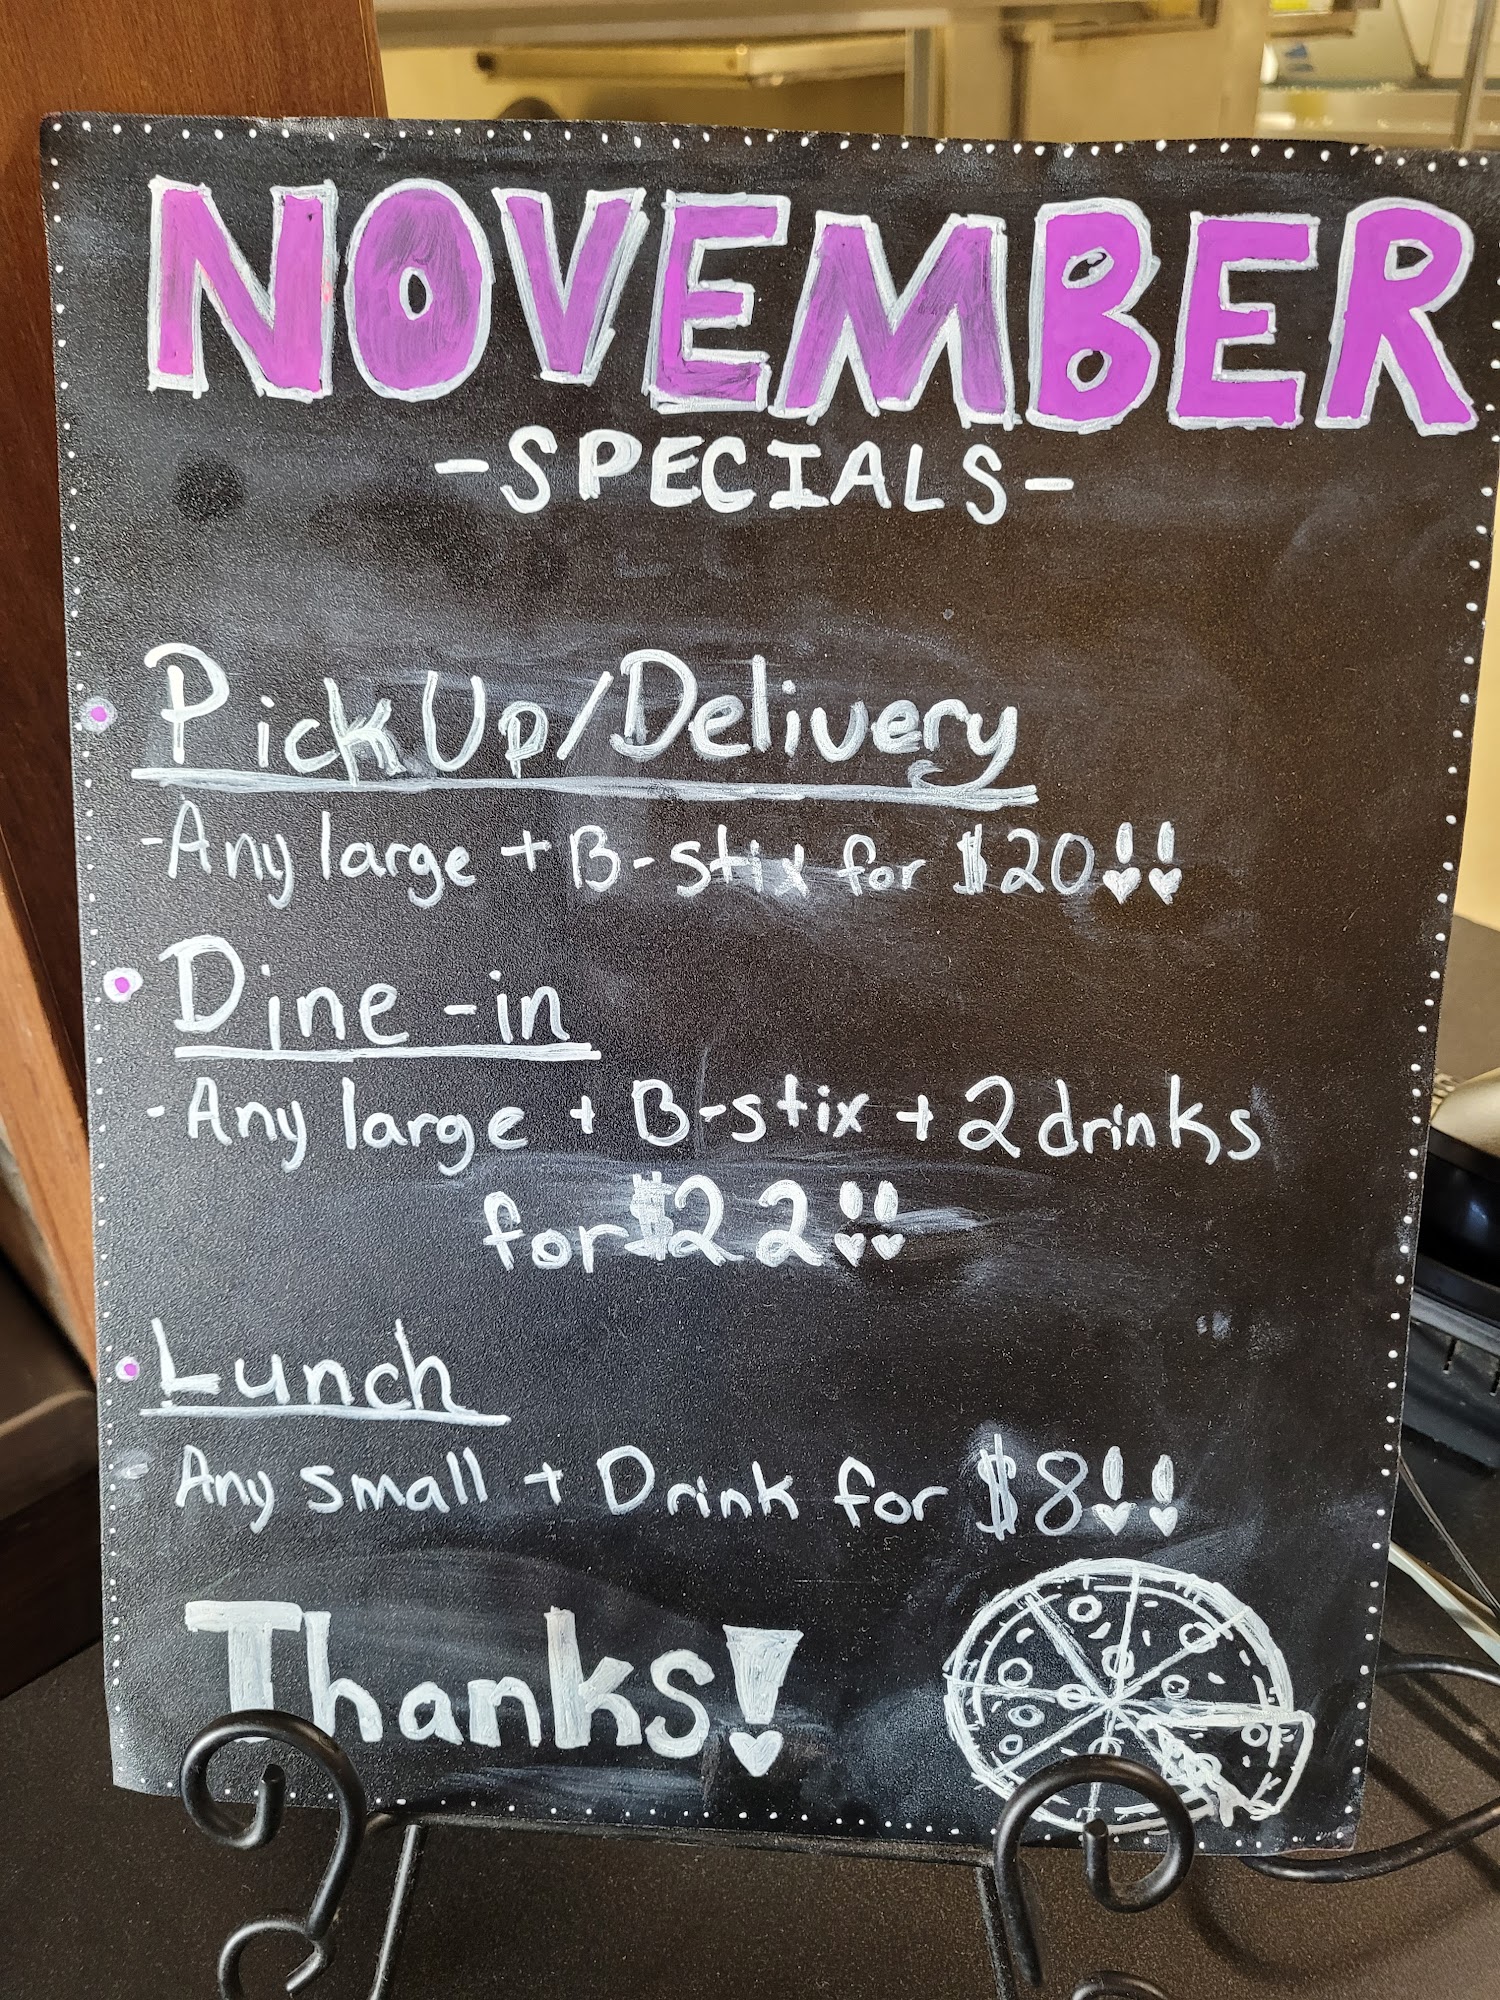 NOVEMBER
-SPECIALS-
Pick Up/Delivery
-Any large + B-stix for $20!!
Dine-in
- Any large + B-stix + 2 drinks
for $22!!
Lunch
- Any small + Drink for $8!!
Thanks!